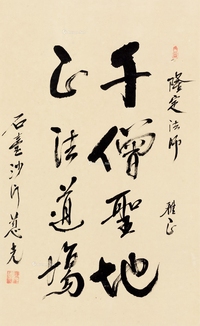 隆定法师
雅正
千僧聖地
正法道場
石臺沙门慈克